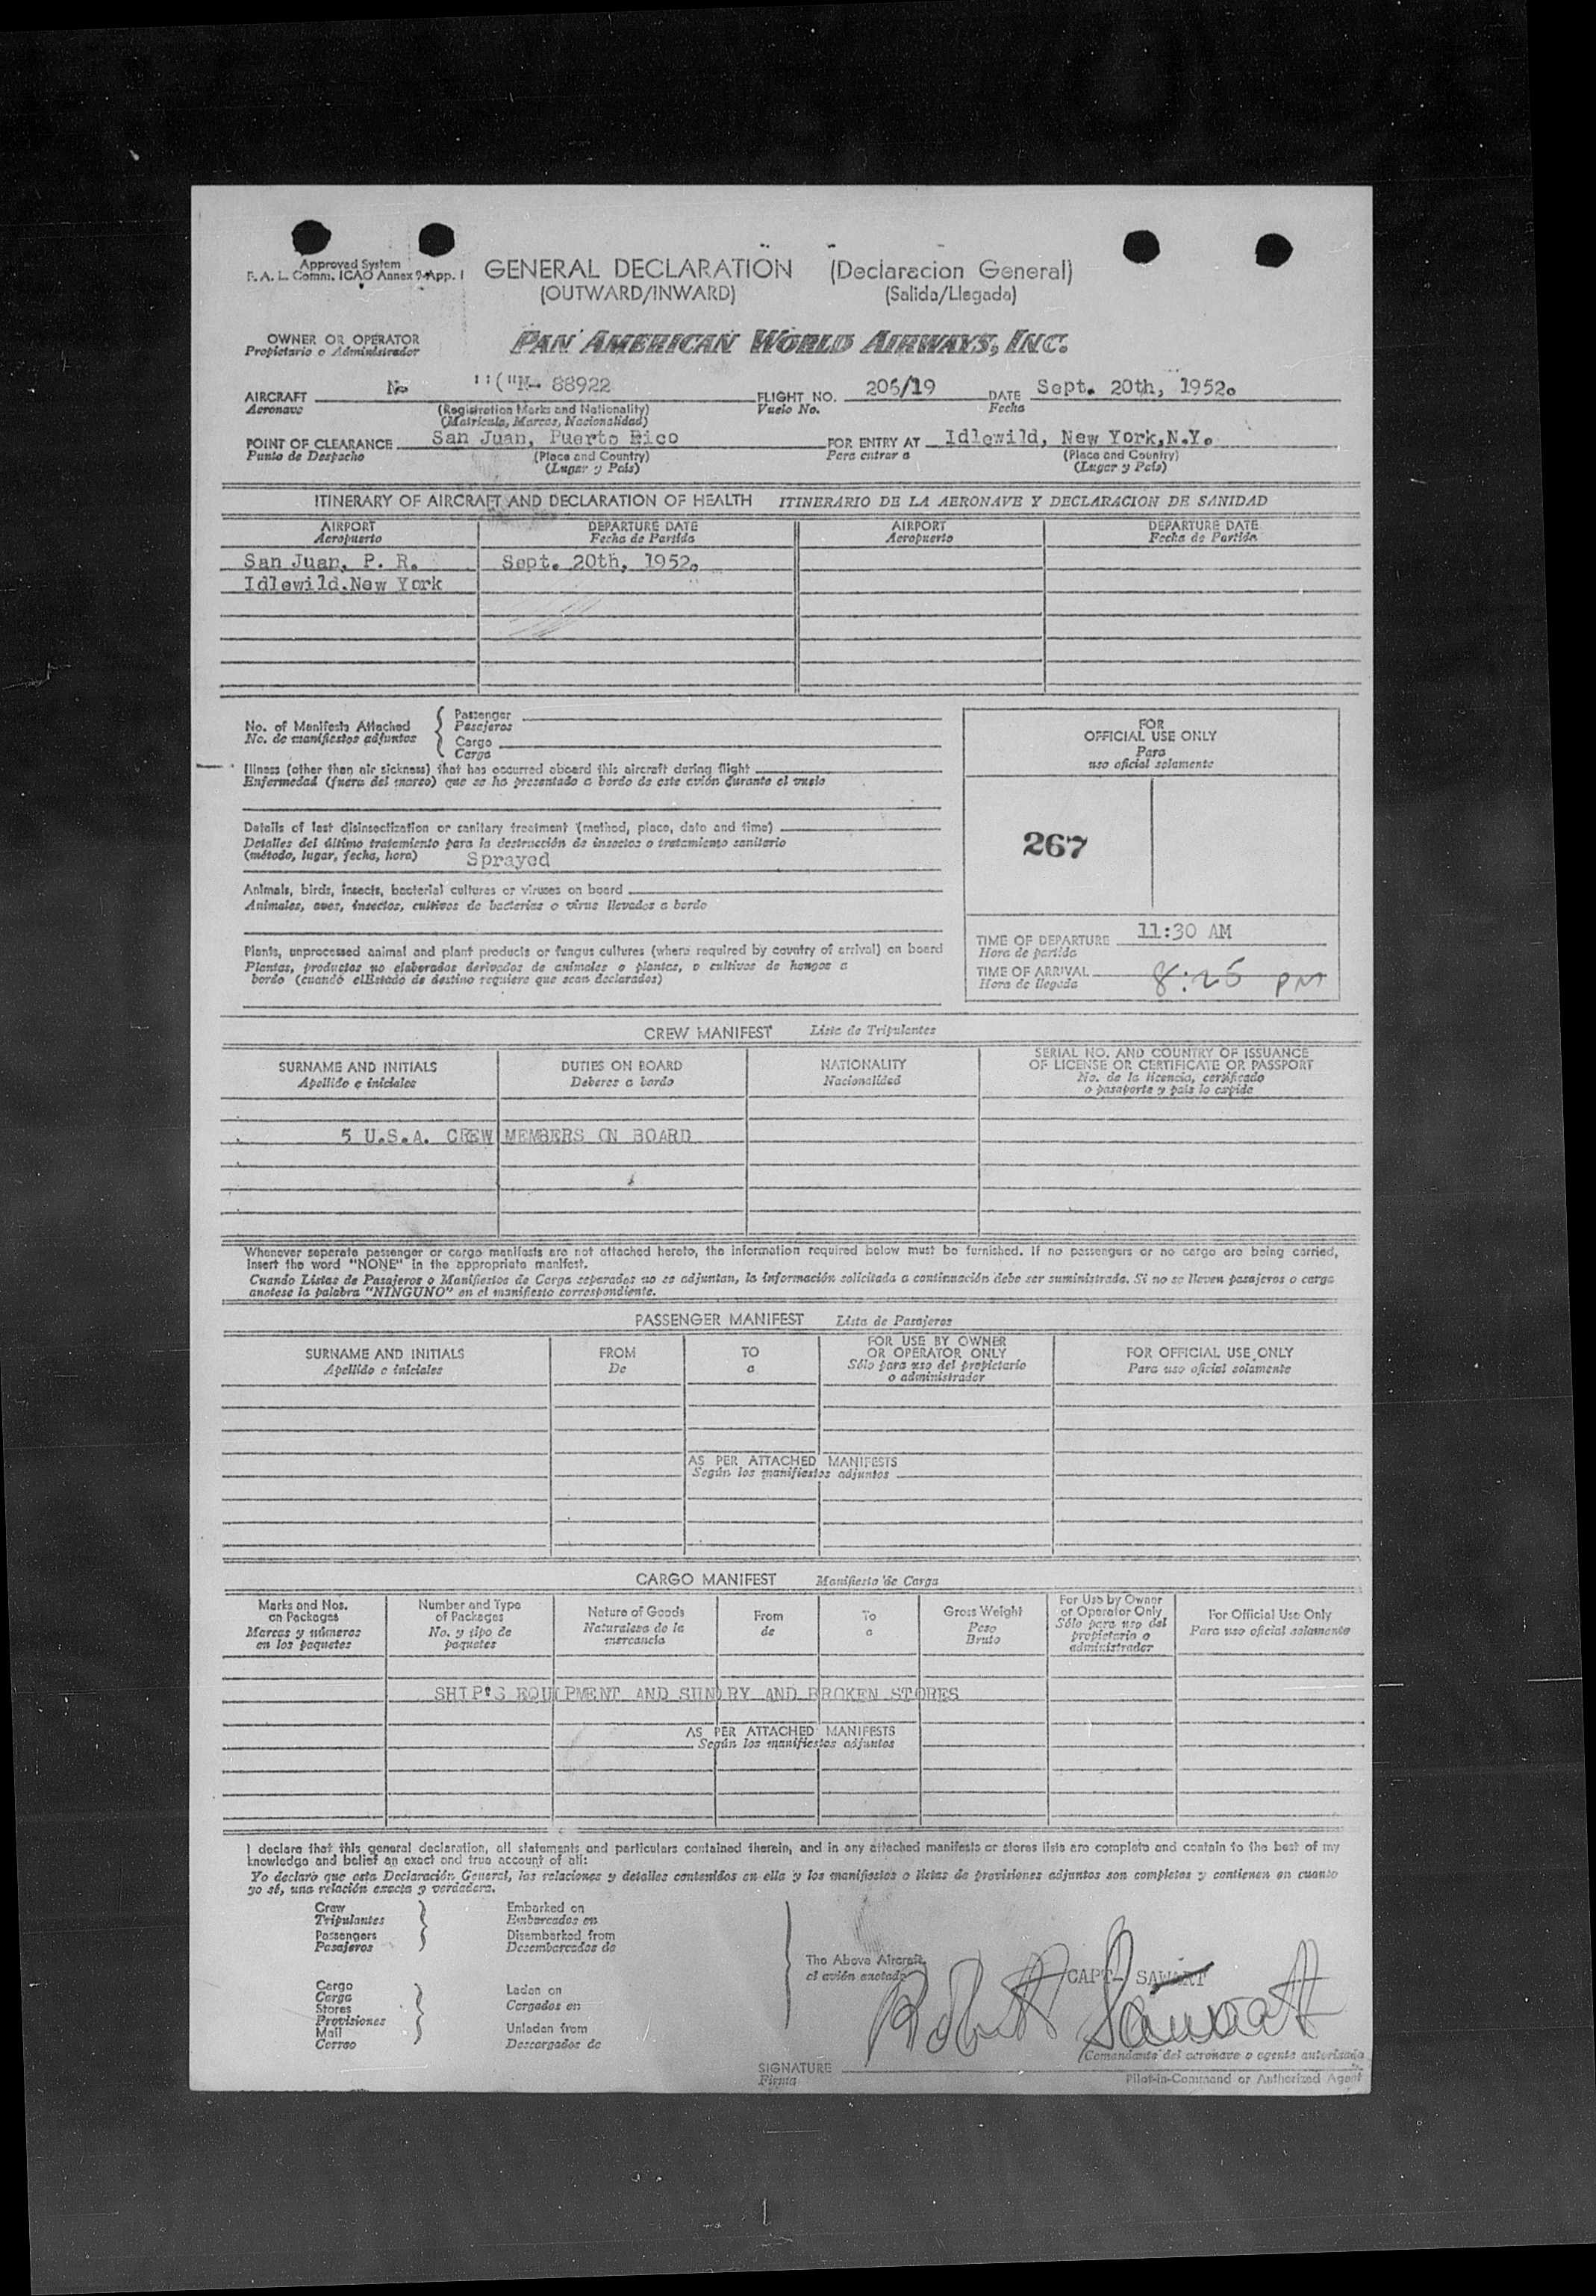 Approved System
F. A. L. Comm. ICAO Annex 9-App. 1
GENERAL DECLARATION (Declaracion General)
(OUTWARD/INWARD) (Salida/Llegada)
OWNER OR OPERATOR
Propietario o Administrador
PAN AMERICAN WORLD AIRWAYS, INC.
AIRCRAFT N- ''("N- 88922 FLIGHT NO. 206/19 DATE Sept. 20th, 1952.
Aeronave (Registration Marks and Nationality) Vuelo No. Fecha
(Matricula, Marcas, Nacionalidad)
POINT OF CLEARANCE San Juan, Puerto Rico FOR ENTRY AT Idlewild, New York,N.Y.
Punto de Despacho (Place and Country) Para entrar a (Place and Country)
(Lugar y País) (Lugar y País)
ITINERARY OF AIRCRAFT AND DECLARATION OF HEALTH ITINERARIO DE LA AERONAVE Y DECLARACION DE SANIDAD
AIRPORT DEPARTURE DATE AIRPORT DEPARTURE DATE
Aeropuerto Fecha de Partida Aeropuerto Fecha de Partida
San Juan, P. R. Sept. 20th, 1952.
Idlewild.New York
No. of Manifests Attached
No. de manifiestos adjuntos
Passenger
Pasajeros
Cargo
Carga
Illness (other than air sickness) that has occurred aboard this aircraft during flight
Enfermedad (fuera del mareo) que se ha presentado a bordo de este avión durante el vuelo
Details of last disinsectization or sanitary treatment (method, place, date and time)
Detalles del último tratamiento para la destrucción de insectos o tratamiento sanitario
(método, lugar, fecha, hora) Sprayed
Animals, birds, insects, bacterial cultures or viruses on board
Animales, aves, insectos, cultivos de bacterias o virus llevados a bordo
Plants, unprocessed animal and plant products or fungus cultures (where required by country of arrival) on board
Plantas, productos no elaborados derivados de animales o plantas, o cultivos de hongos a
bordo (cuando elEstado de destino requiere que sean declarados)
FOR
OFFICIAL USE ONLY
Para
uso oficial solamente
267
TIME OF DEPARTURE 11:30 AM
Hora de partida
TIME OF ARRIVAL 8:25 PM
Hora de llegada
CREW MANIFEST Lista de Tripulantes
SURNAME AND INITIALS DUTIES ON BOARD NATIONALITY SERIAL NO. AND COUNTRY OF ISSUANCE
OF LICENSE OR CERTIFICATE OR PASSPORT
Apellido e iniciales Deberes a bordo Nacionalidad No. de la licencia, certificado
o pasaporte y país lo expide
5 U.S.A. CREW MEMBERS ON BOARD
Whenever separate passenger or cargo manifests are not attached hereto, the information required below must be furnished. If no passengers or no cargo are being carried,
insert the word "NONE" in the appropriate manifest.
Cuando Listas de Pasajeros o Manifiestos de Carga separados no se adjuntan, la información solicitada a continuación debe ser suministrada. Si no se lleven pasajeros o carga
anotese la palabra "NINGUNO" en el manifiesto correspondiente.
PASSENGER MANIFEST Lista de Pasajeros
SURNAME AND INITIALS FROM TO FOR USE BY OWNER
OR OPERATOR ONLY FOR OFFICIAL USE ONLY
Apellido e iniciales De a Sólo para uso del propietario
o administrador Para uso oficial solamente
AS PER ATTACHED MANIFESTS
Según los manifiestos adjuntos
CARGO MANIFEST Manifiesto de Carga
Marks and Nos.
on Packages
Marcas y números
en los paquetes
Number and Type
of Packages
No. y tipo de
paquetes
Nature of Goods
Naturalesa de la
mercancia
From
de
To
a
Gross Weight
Peso
Bruto
For Use by Owner
or Operator Only
Sólo para uso del
propietario o
administrador
For Official Use Only
Para uso oficial solamente
SHIP'S EQUIPMENT AND SUNDRY AND BROKEN STORES
AS PER ATTACHED MANIFESTS
Según los manifiestos adjuntos
I declare that this general declaration, all statements and particulars contained therein, and in any attached manifests or stores lists are complete and contain to the best of my
knowledge and belief an exact and true account of all:
Yo declaro que esta Declaración General, las relaciones y detalles contenidos en ella y los manifiestos o listas de provisiones adjuntos son completas y contienen en cuanto
yo sé, una relación exacta y verdadera.
Crew
Tripulantes
Passengers
Pasajeros
Embarked on
Embarcados en
Disembarked from
Desembarcados de
Cargo
Carga
Stores
Provisiones
Mail
Correo
Laden on
Cargados en
Unladen from
Descargados de
The Above Aircraft
el avión anotado
CAPT. SAWART
Robert Sawart
Comandante del aeronave o agente autorizado
SIGNATURE
Firma
Pilot-in-Command or Authorized Agent